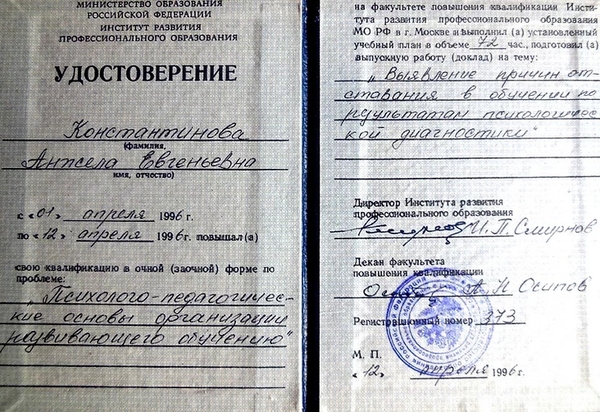 МИНИСТЕРСТВО ОБРАЗОВАНИЯ
РОССИЙСКОЙ ФЕДЕРАЦИИ
ИНСТИТУТ РАЗВИТИЯ
ПРОФЕССИОНАЛЬНОГО ОБРАЗОВАНИЯ
УДОСТОВЕРЕНИЕ
Константинова
(фамилия,
Анжела Евгеньевна
имя, отчество)
с «01» апреля 1996 г.
по «12» апреля 1996 г. повышал(а)
свою квалификацию в очной (заочной) форме по
проблеме:
„Психолого-педагогичес-
кие основы организации
развивающего обучению"
на факультете повышения квалификации Инсти-
тута развития профессионального образования
МО РФ в г. Москве и выполнил (а) установленный
учебный план в объеме 72 час., подготовил (а)
выпускную работу (доклад) на тему:
„Выявление причин от-
ставания в обучении по
результатам психологичес-
кой диагностики"
Директор Института развития
профессионального образования
И.П. Смирнов
Декан факультета
повышения квалификации
А. Н Осипов
Регистрационный номер 373
М. П.
«12» апреля 1996 г.